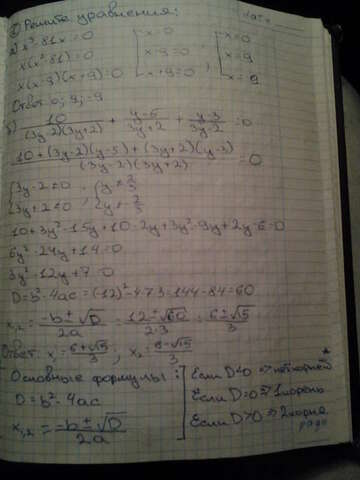 ① Решите уравнения:
а) x³-81x=0
x(x²-81)=0
x(x-9)(x+9)=0
[x=0
x-9=0
x+9=0;
[x=0
x=9
x=-9
Ответ: 0; 9; -9
б) 10/((3y-2)(3y+2)) + (y-5)/(3y+2) + (y-3)/(3y-2) = 0
(10+(3y-2)(y-5)+(3y+2)(y-3))/((3y-2)(3y+2)) = 0
{3y-2≠0 {y≠2/3
{3y+2≠0; {y≠-2/3
10+3y²-15y+10-2y+3y²-9y+2y-6=0
6y²-24y+14=0
3y²-12y+7=0
D=b²-4ac=(12)²-4·7·3=144-84=60
x₁,₂=(-b±√D)/2a=(12±√60)/(2·3)=(6±√15)/3
Ответ: x₁=(6+√15)/3; x₂=(6-√15)/3
Основные формулы:
D=b²-4ac
x₁,₂=(-b±√D)/2a
Если D<0 ⇒ нет корней
Если D=0 ⇒ 1 корень
Если D>0 ⇒ 2 корня